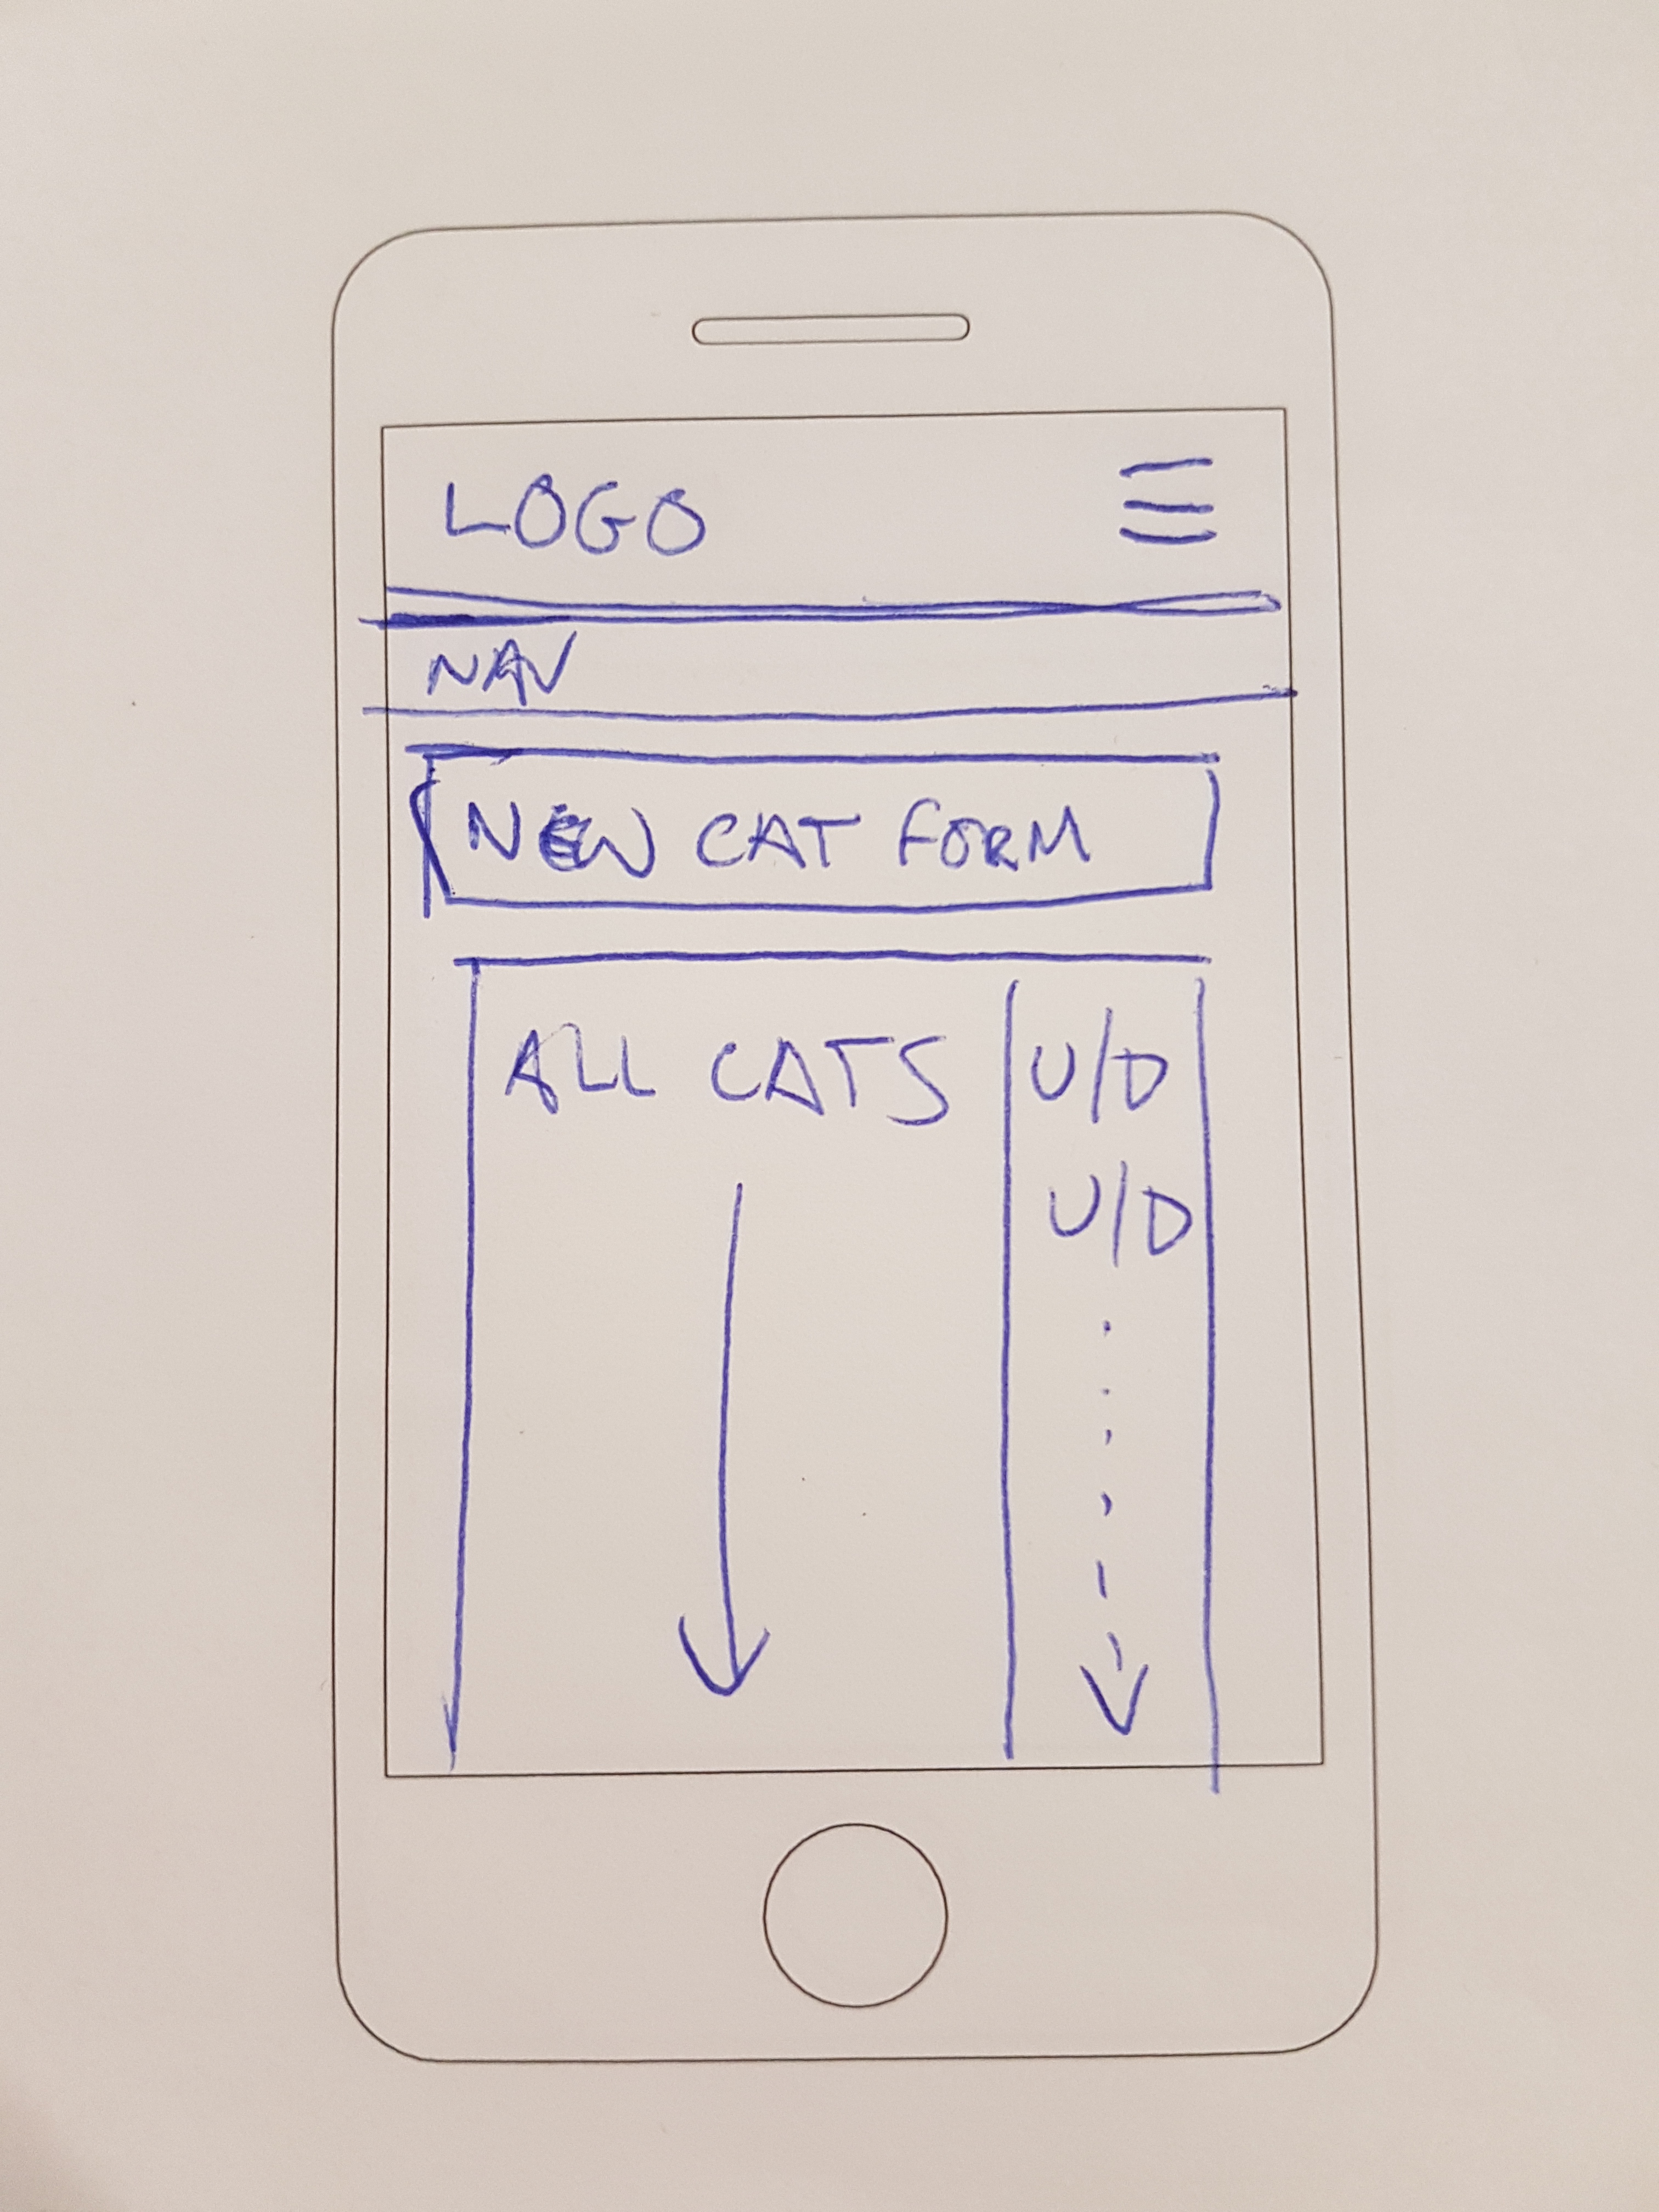 LOGO
NAV
NEW CAT FORM
ALL CATS U/D
U/D